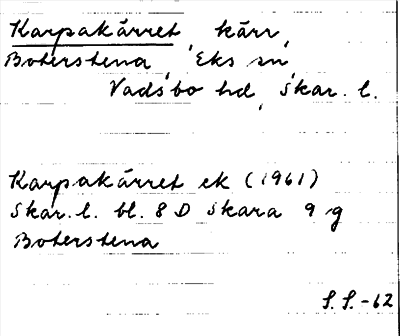 Karpakärret, kärr,
Boterstena, Eks sn,
Vadsbo hd, Skar. l.
Karpakärret ek (1961)
Skar. l. bl. 8 D Skara 9 g
Boterstena
S. S. -62